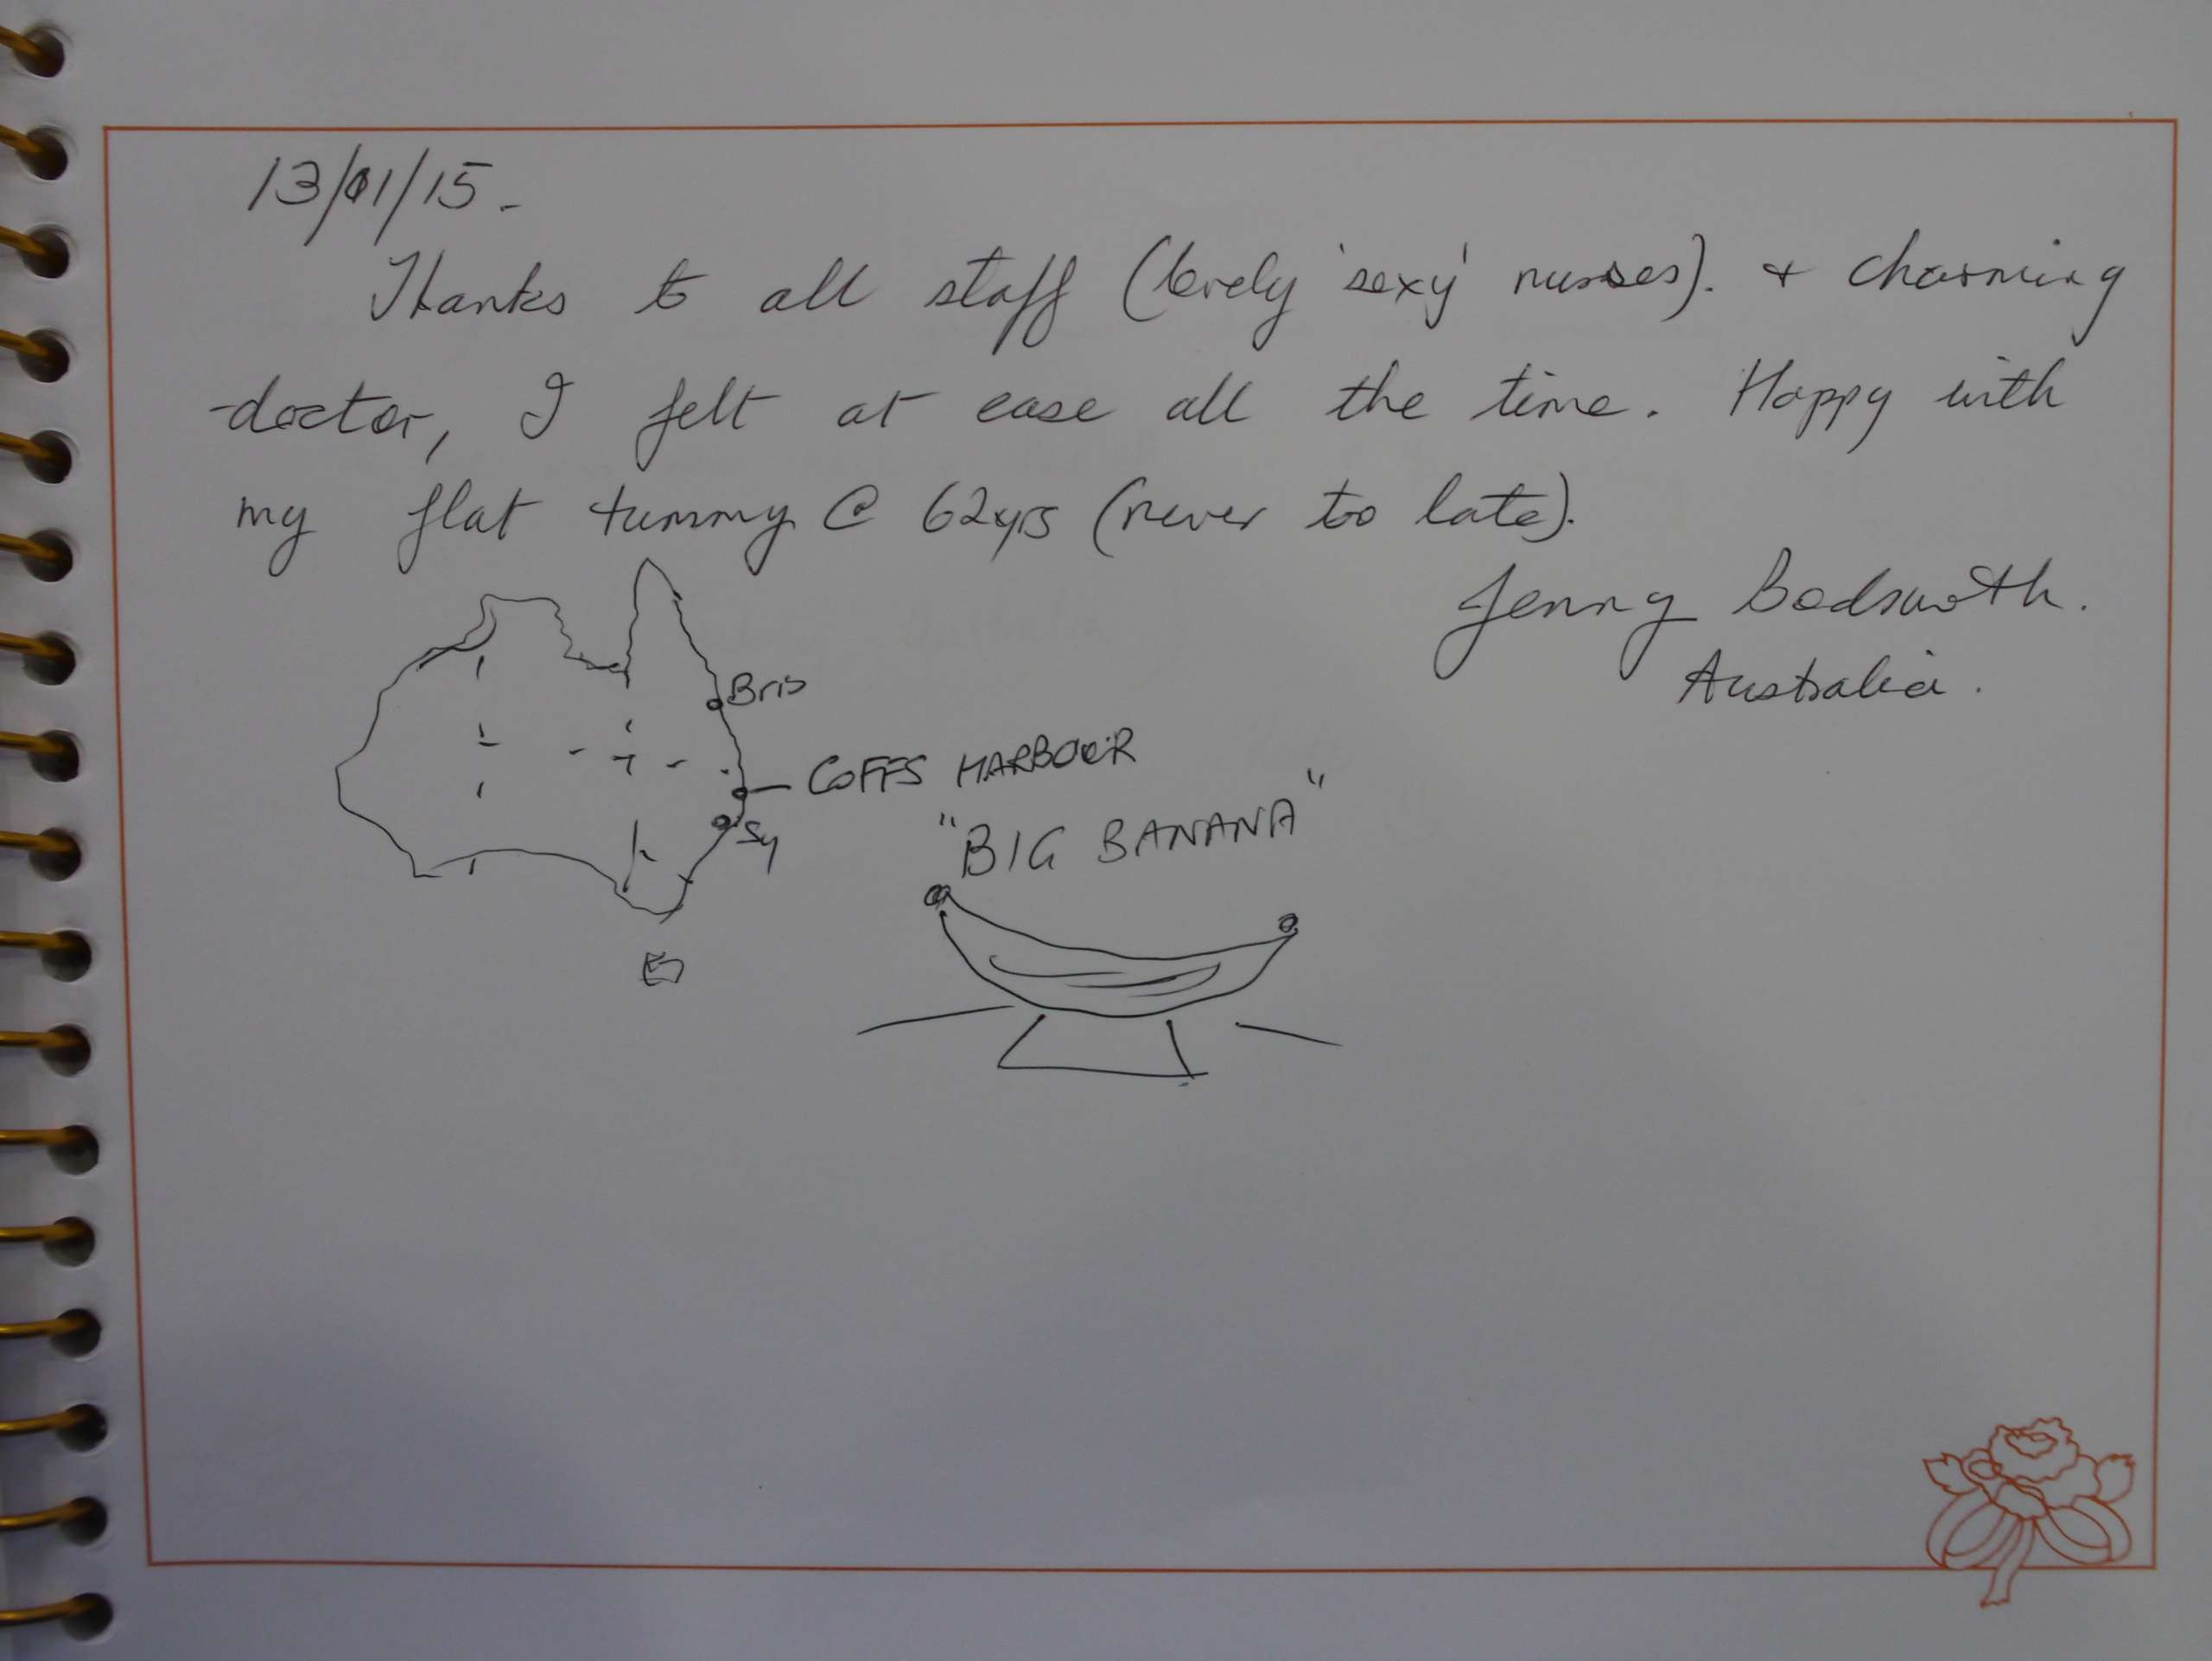 13/01/15.
Thanks to all staff (lovely 'sexy' nurses). + charming
doctor, I felt at ease all the time. Happy with
my flat tummy @ 62yrs (never to late).
Jenny Bodsworth.
Australia.
Bris
COFFS HARBOUR
Sy
"BIG BANANA"